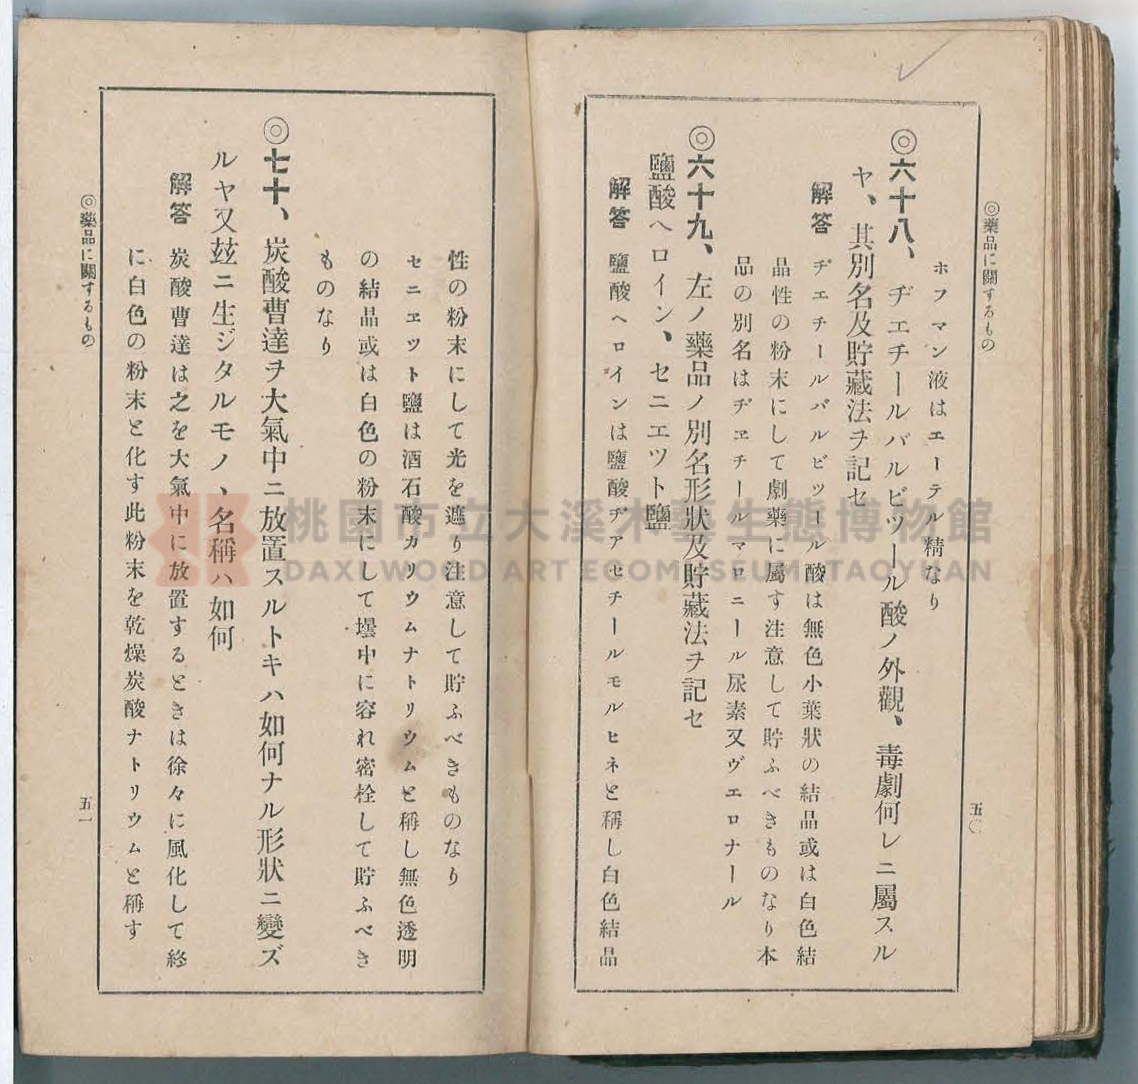 ◎藥品に關するもの
五〇
ホフマン液はエーテル精なり
◎六十八、ヂエチールバルビツール酸ノ外觀、毒劇何レニ屬スル
ヤ、其別名及貯藏法ヲ記セ
解答 ヂエチールバルビツール酸は無色小葉狀の結晶或は白色結
晶性の粉末にして劇藥に屬す注意して貯ふべきものなり本
品の別名はヂヱチールマロニール尿素又ヴエロナール
◎六十九、左ノ藥品ノ別名形狀及貯藏法ヲ記セ
鹽酸ヘロイン、セニエツト鹽
解答 鹽酸ヘロインは鹽酸ヂアセチールモルヒネと稱し白色結晶
性の粉末にして光を遮り注意して貯ふべきものなり
セニヱツト鹽は酒石酸カリウムナトリウムと稱し無色透明
の結晶或は白色の粉末にして壜中に容れ密栓して貯ふべき
ものなり
◎七十、炭酸曹達ヲ大氣中ニ放置スルトキハ如何ナル形狀ニ變ズ
ルヤ又玆ニ生ジタルモノヽ名稱ハ如何
解答 炭酸曹達は之を大氣中に放置するときは徐々に風化して終
に白色の粉末と化す此粉末を乾燥炭酸ナトリウムと稱す
◎藥品に關するもの
五一
桃園市立大溪木藝生態博物館
DAXI WOOD ART ECOMUSEUM, TAOYUAN